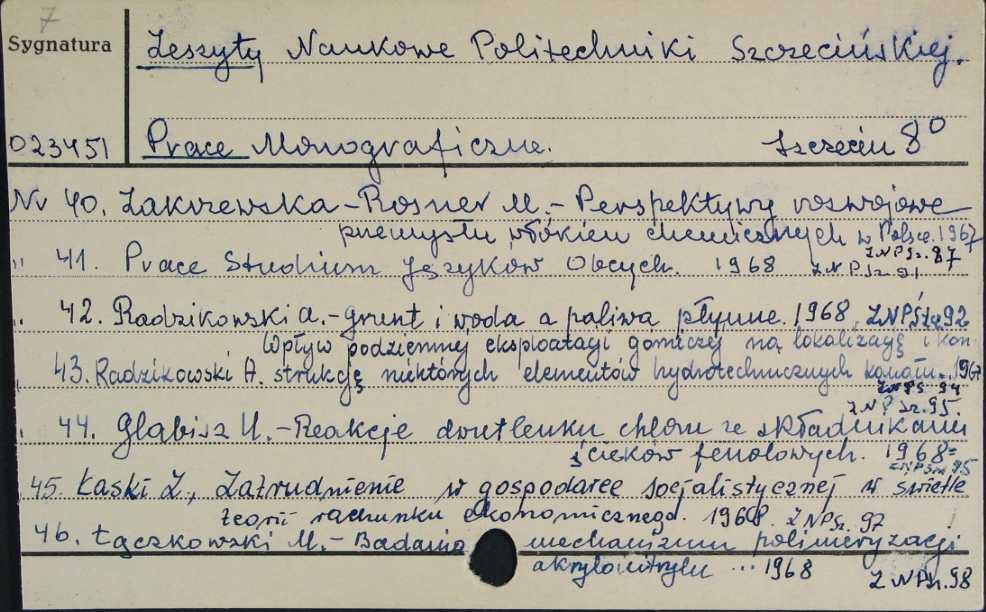 7
Sygnatura
Zeszyty Naukowe Politechniki Szczecińskiej.
023451
Prace Monograficzne. Szczecin 8°
Nr 40. Zakrzewska-Rosner M.- Perspektywy rozwojowe
przemysłu włókien chemicznych w Polsce. 1967
ZNPSz. 87
" 41. Prace Studium Języków Obcych. 1968 ZNPSz. 91
" 42. Radzikowski A.- Grunt i woda a paliwa płynne. 1968. ZNPSz 92
Wpływ podziemnej eksploatacji górniczej na lokalizację i kon-
" 43. Radzikowski A. strukcję niektórych elementów hydrotechnicznych kanału. 1967
ZNPS. 94
ZNPSz. 95.
" 44. Głabisz U.- Reakcje dwutlenku chloru ze składnikami
ścieków fenolowych. 1968=
ZNPSz 95
" 45. Łaski Z., Zatrudnienie w gospodarce socjalistycznej w świetle
teorii rachunku ekonomicznego. 1968. ZNPSz. 97
46. Łączkowski M.- Badania mechanizmu polimeryzacji
akrylonitrylu ... 1968
ZNPSz. 98